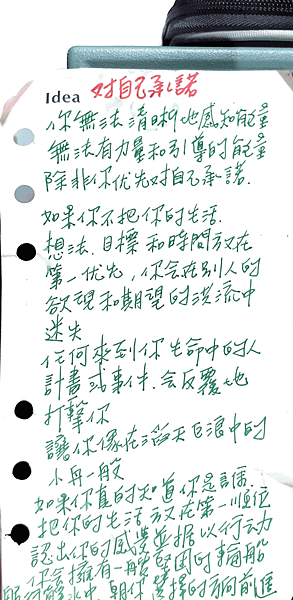 Idea 对自己承諾
你無法清晰地感知能量
無法有力量和引導的能量
除非你优先对自己承諾.
如果你不把你的生活.
想法.目標和時間放在
第一优先,你会在别人的
欲望和期望的洪流中
迷失
任何來到你生命中的人
計畫或事件.会反覆地
打擊你
讓你像在滔天巨浪中的
小舟一般
如果你真的知道你是誰.
把你的生活放在第一順位
認出你的感覺並据以行动
你会擁有一艘堅固的輪船
中,朝你選擇的方向前進